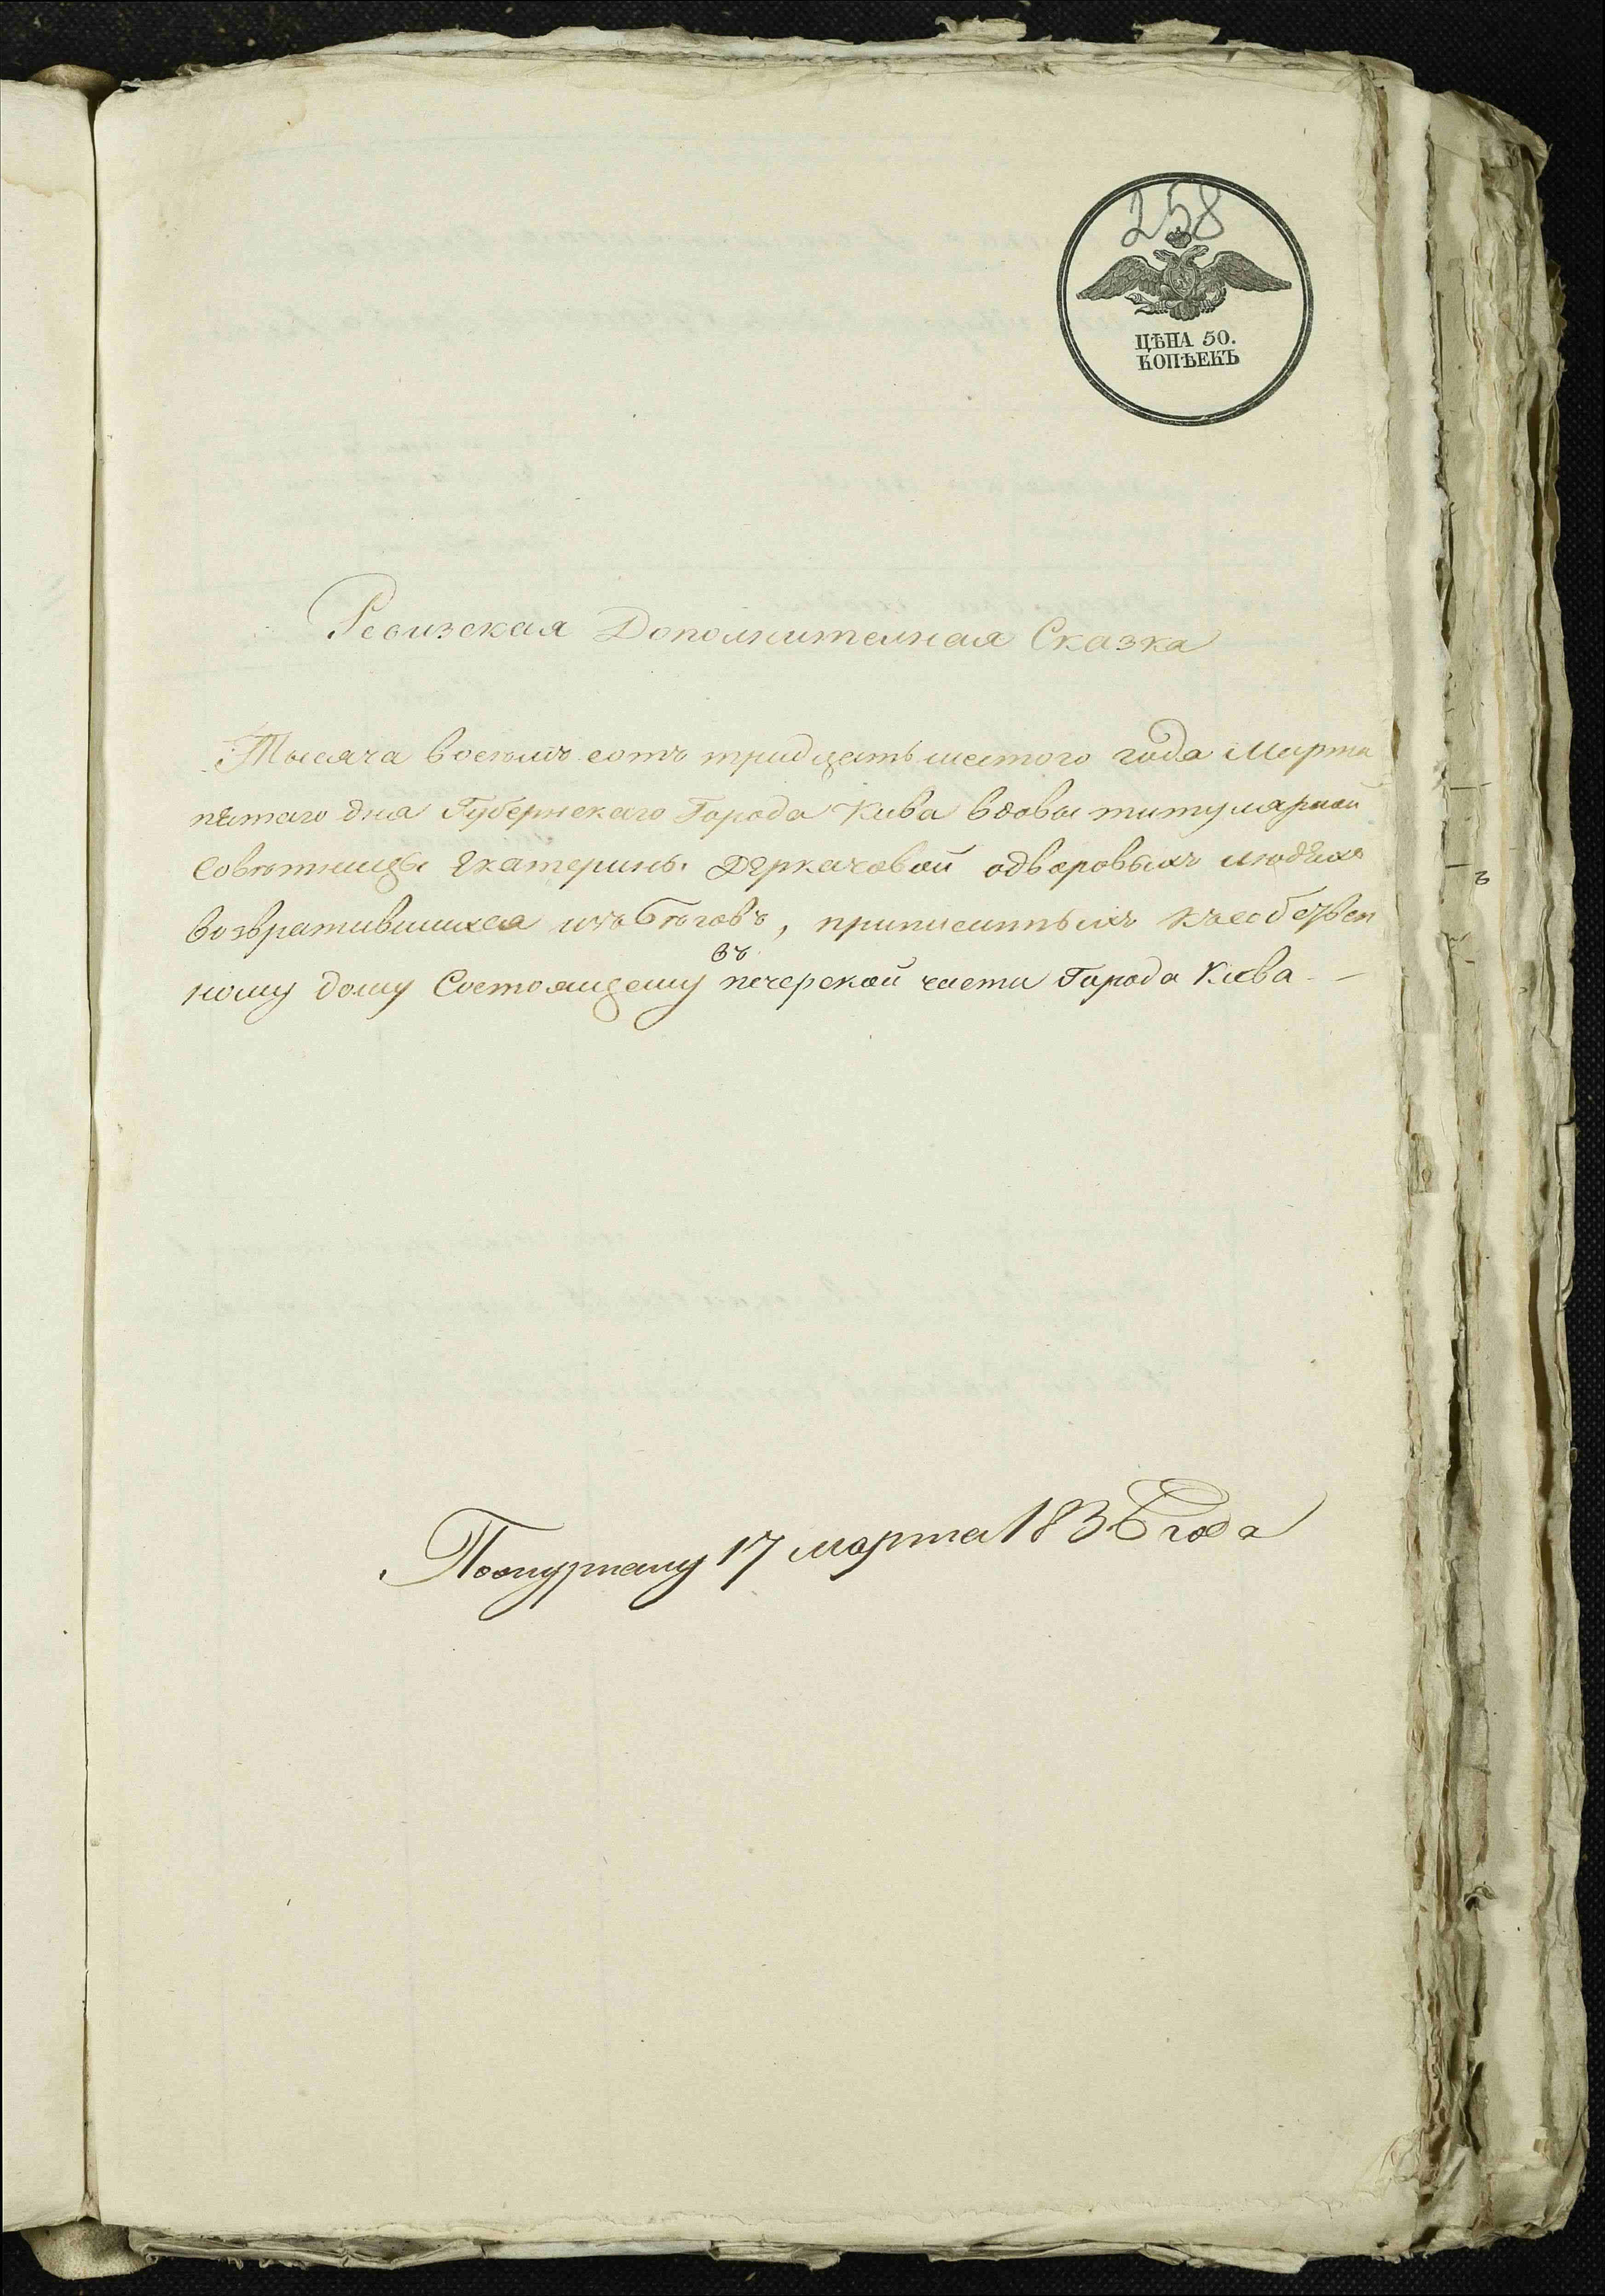 258
ЦѢНА 50.
КОПѢЕКЪ
Ревизская Дополнителная Сказка
Тысяча восемъ сотъ тридцать шестого года Марта
пятаго дня Губернскаго Города Киева вдовы титулярной
Совѣтницы Екатерины Деркачовой одворовыхъ людяхъ
возвратившихся изъ бѣговъ, приписанныхъ къ собствен
ному дому Состоящему въ печерской части Города Киева
17 марта 1836 года